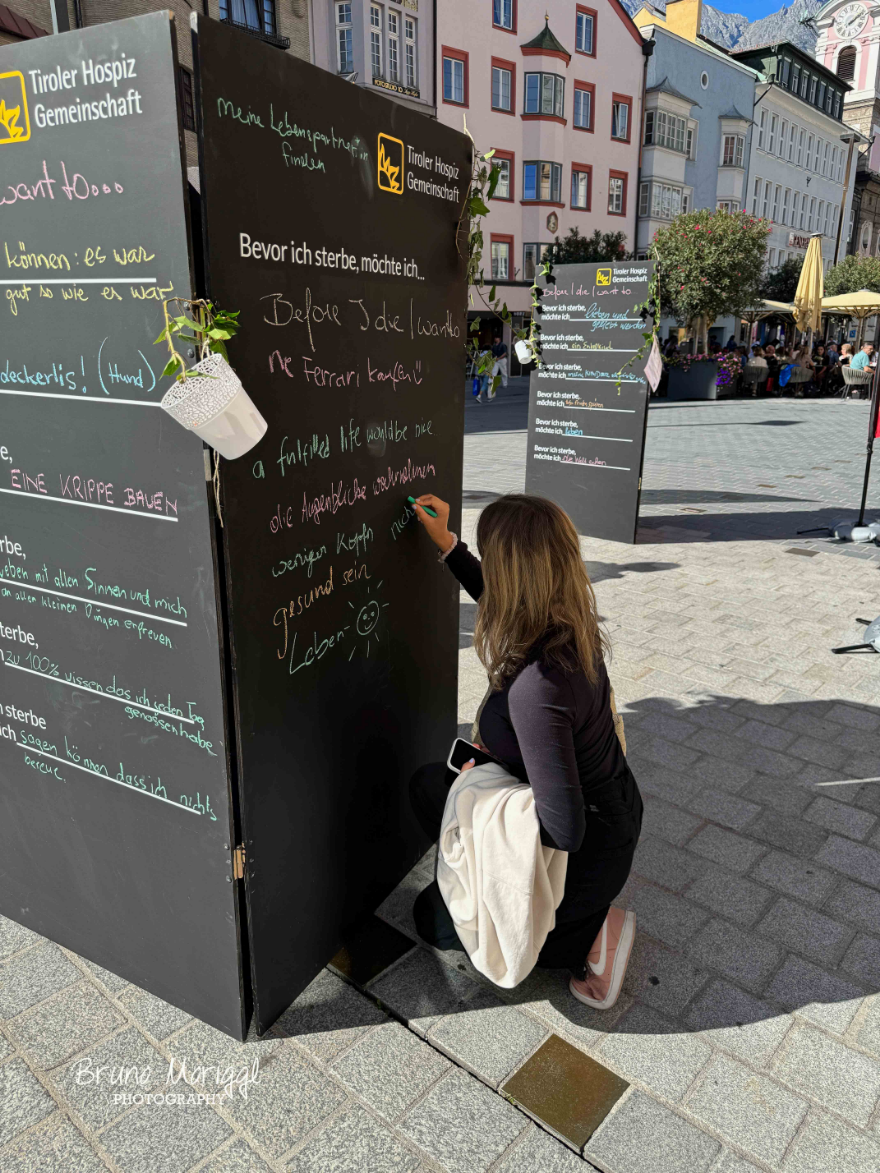 Tiroler Hospiz
Gemeinschaft
want to...
können: es war
gut so wie es war
deckerlis! (Hund)
e,
EINE KRIPPE BAUEN
rbe,
leben mit allen Sinnen und mich
an allen kleinen Dingen erfreuen
sterbe,
zu 100% wissen dass ich jeden Tag
genossen habe
h sterbe
ich sagen können dass ich nichts
bereue.
meine Lebenspartnerin
finden
Tiroler Hospiz
Gemeinschaft
Bevor ich sterbe, möchte ich...
Before I die I want to
ne Ferrari kaufen
a fulfilled life would be nice
die Augenblicke wahrnehmen
weniger Kopf
gesund sein
Leben
Tiroler Hospiz
Gemeinschaft
Before I die I want to
Bevor ich sterbe,
möchte ich lieben und
geliebt werden
Bevor ich sterbe,
möchte ich ein
Bevor ich sterbe,
möchte ich
Bevor ich sterbe,
möchte ich
Bevor ich sterbe,
möchte ich leben
Bevor ich sterbe,
möchte ich die Welt
Bruno Moriggl
PHOTOGRAPHY